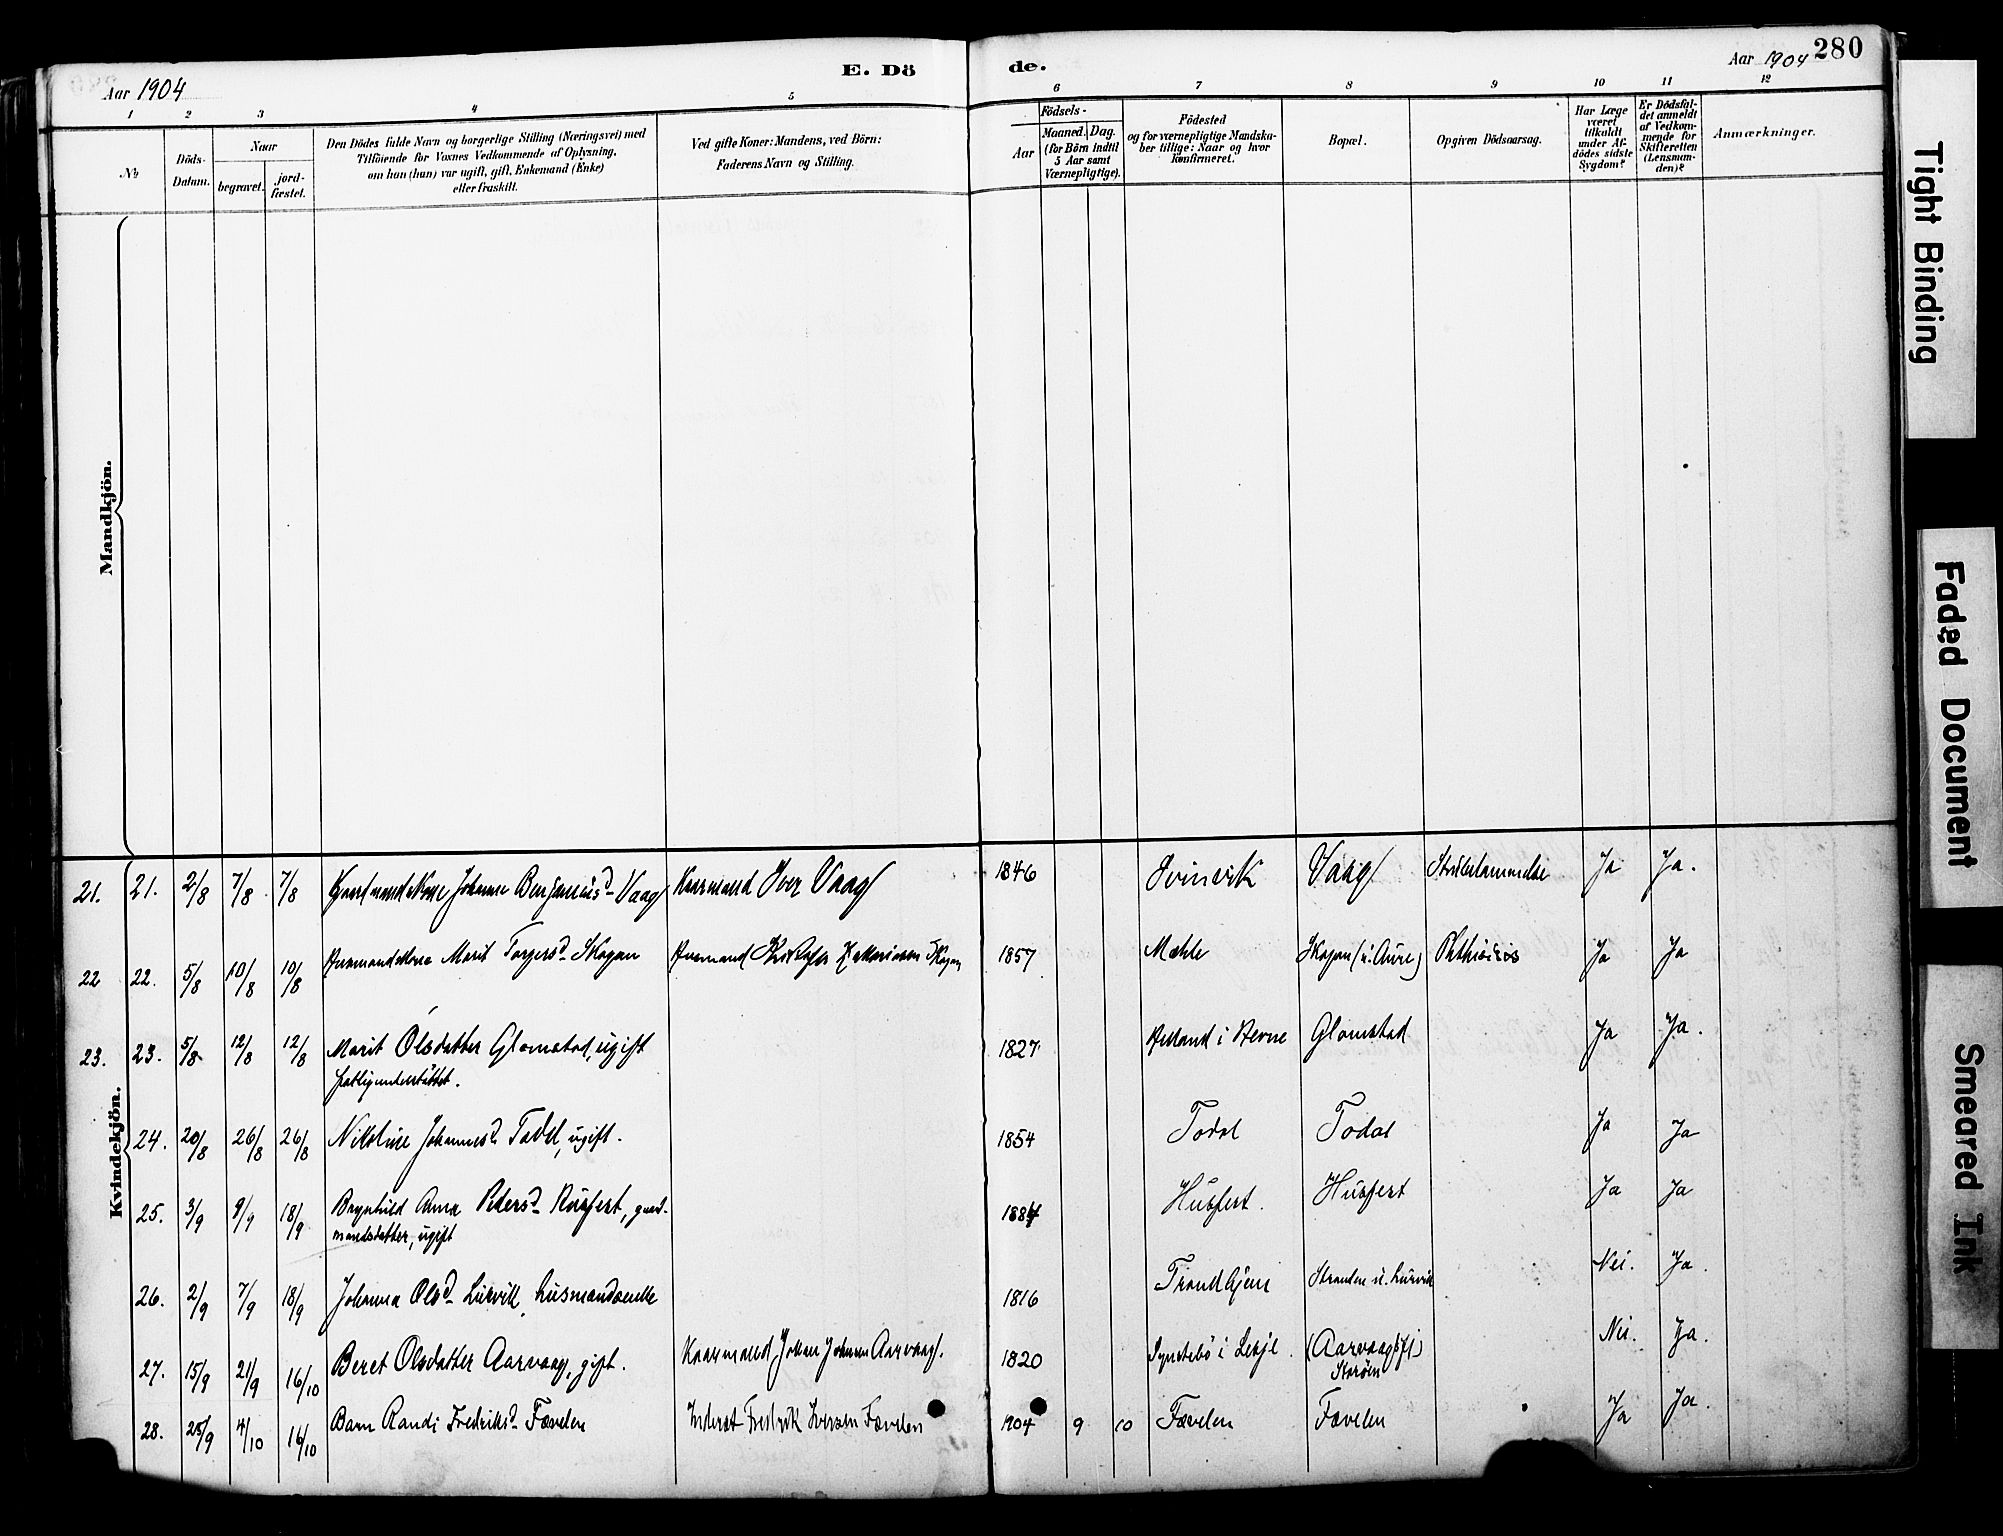 Aar 1904
E. Dö
de.
Aar 1904
280
1 2 3 4 5 6 7 8 9 10 11 12
№
Döds-
Datum.
Naar
begravet.
jord-
fæstet.
Den Dödes fulde Navn og borgerlige Stilling (Næringsvei) med
Tilföiende for Voxnes Vedkommende af Oplysning,
om han (hun) var ugift, gift, Enkemand (Enke)
eller fraskilt.
Ved gifte Koner: Mandens, ved Börn:
Faderens Navn og Stilling.
Födsels-
Aar
Maaned. Dag.
(for Börn indtil
5 Aar samt
Værnepligtige).
Födested
og for værnepligtige Mandska-
ber tillige: Naar og hvor
konfirmeret.
Bopæl.
Opgiven Dödsaarsag.
Har Læge
været
tilkaldt
under Af-
dödes sidste
Sygdom?
Er Dödsfal-
det anmeldt
af Vedkom-
mende for
Skifteretten
(Lensman-
den)?
Anmærkninger.
Mandkjön.
Kvindekjön.
21. 21. 2/8 7/8 7/8 Johanne Vaag Kaarmand Iver Vaag 1846 Svinvik Vaag Ja Ja.
22 22. 5/8 10/8 10/8 Marit Torgersd. Skogan Skogan 1857 Mæhle Skogan (i Aure) Phthisis Ja Ja
23. 23. 5/8 12/8 12/8 Marit Olsdatter Glomstad, ugift 1827 i Hevne Glomstad Ja Ja.
fattigunderstöttet.
24. 20/8 26/8 26/8 Nikoline Johannesd. Todal, ugift. 1854 Todal Todal Ja Ja
25. 3/9 9/9 18/9 Brynhild Anna Petersd. Husfest, gaard- 1884 Husfest. Husfest Ja Ja
mandsdatter, ugift
26. 2/9 7/9 18/9 Johanna Olsd. Lurvik, husmandsenke 1816 Trondhjem Stranden u. Lurvik Nei. Ja.
27. 15/9 21/9 16/10 Beret Olsdatter Aarvaag, gift. Kaarmand Johan Aarvaag. 1820 i Leksv. (Aarvaag Nei. Ja.
Storöen
28. 25/9 4/10 16/10 Barn Randi Fredriksd. Fævelen Inderst Fredrik Iversen Fævelen 1904 9 10 Fævelen Fævelen Ja Ja.
Tight Binding
Faded Document
Smeared Ink